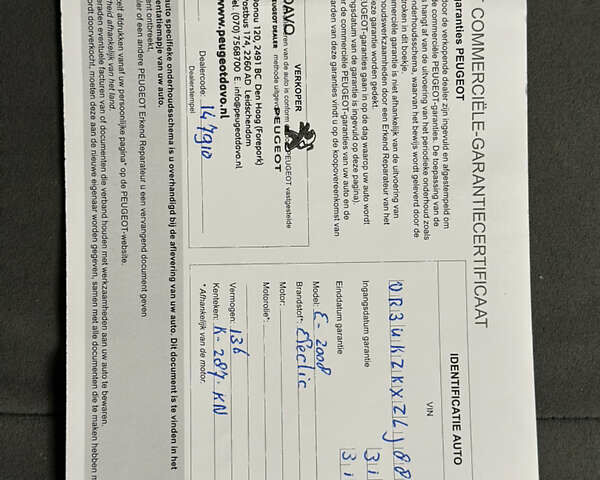 T COMMERCIËLE-GARANTIECERTIFICAAT
garanties PEUGEOT
door de verkopende dealer zijn ingevuld en afgestempeld om
commerciële PEUGEOT-garanties. De toepassing van de
hangt af van de uitvoering van het periodieke onderhoud zoals
onderhoudsschema, waarvan het bewijs wordt geleverd door de
in dit boekje.
commerciële garantie is niet afhankelijk van de uitvoering van
door een Erkend Reparateur van het
deze garantie worden gedekt.
PEUGEOT-garanties gaan in op de dag waarop uw auto wordt
ingsdatum van de garantie is ingevuld op deze pagina).
de commerciële PEUGEOT-garanties van uw auto en de
arden van deze garanties vindt u op de koopovereenkomst van
VERKOPER
DAVO
eren van de auto is conform
PEUGEOT vastgestelde
PEUGEOT
PEUGEOT DEALER
2491 BC Den Haag (Forepark)
Postbus 174, 2260 AD Leidschendam
Tel. (070) 7568700 E. info@peugeotdavo.nl
www.peugeotdavo.nl
Dealercode: 147910
Dealerstempel
IDENTIFICATIE AUTO
VIN
VR3UKZKXZLJ88
Ingangsdatum garantie 31
Einddatum garantie 31
Model: E-2008
Brandstof*: Electic
Motor:
Motorolie*:
Vermogen: 136
Kenteken: K-287-KN
*Afhankelijk van de motor.
auto specifieke onderhoudsschema is u overhandigd bij de aflevering van uw auto. Dit document is te vinden in het
entatiemapje van uw auto.
ent ontbreekt,
ler of een andere PEUGEOT Erkend Reparateur u een vervangend document geven
elf afdrukken vanaf uw persoonlijke pagina* op de PEUGEOT-website.
heid afhankelijk van het land.
raden eventuele facturen van of documenten die verband houden met werkzaamheden aan uw auto te bewaren.
ordt doorverkocht, moeten deze aan de nieuwe eigenaar worden gegeven, samen met alle documenten die te maken hebben m